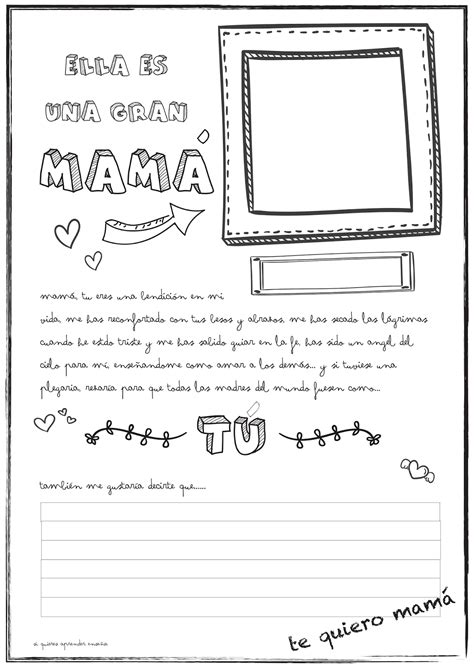 ELLA ES
UNA GRAN
MAMÁ
mamá, tu eres una bendición en mi
vida, me has reconfortado con tus besos y abrazos, me has secado las lágrimas
cuando he estdo triste y me has salido guiar en la fe, has sido un angel del
cielo para mi, enseñandome como amar a los demás... y si tuviese una
plegaria, rezaria para que todas las madres del mundo fuesen como...
TÚ
también me gustaría decirte que......
te quiero mamá
si quieres aprender enseña